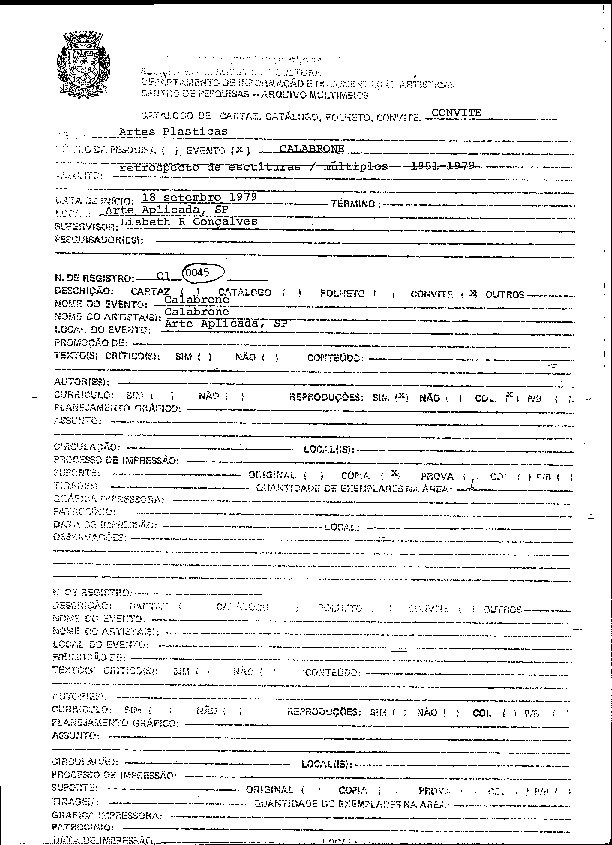 CULTURA
DEPARTAMENTO DE INFORMAÇÃO E DOCUMENTAÇÃO ARTÍSTICAS
CENTRO DE PESQUISAS - ARQUIVO MULTIMEIOS
CATÁLOGO DE CARTAZ, CATÁLOGO, FOLHETO, CONVITE CONVITE
Artes Plasticas
PESQUISA ( ) EVENTO (X) CALABRONE
retrospecto de esctituras / múltiplos 1961-1979
DATA DE INÍCIO: 18 setembro 1979 TÉRMINO:
Arte Aplicada, SP
SUPERVISOR: Lisbeth R Gonçalves
PESQUISADOR(ES):
N. DE REGISTRO: 01 0045
DESCRIÇÃO: CARTAZ ( ) CATÁLOGO ( ) FOLHETO ( ) CONVITE (X OUTROS
NOME DO EVENTO: Calabrone
NOME DO ARTISTA(S): Calabrone
LOCAL DO EVENTO: Arte Aplicada, SP
PROMOÇÃO DE:
TEXTO(S) CRÍTICO(S): SIM ( ) NÃO ( ) CONTEÚDO:
AUTOR(ES):
CURRÍCULO: SIM ( ) NÃO ( ) REPRODUÇÕES: SIM (X) NÃO ( ) COL (X) P/B ( )
PLANEJAMENTO GRÁFICO:
ASSUNTO:
CIRCULAÇÃO: LOCAL(IS):
PROCESSO DE IMPRESSÃO:
SUPORTE: ORIGINAL ( ) COPIA (X) PROVA ( ) COL ( ) P/B ( )
TIRAGEM: QUANTIDADE DE EXEMPLARES NA ÁREA:
GRÁFICA IMPRESSORA:
PATROCÍNIO:
DATA DE IMPRESSÃO: LOCAL:
OBSERVAÇÕES:
N. DE REGISTRO:
DESCRIÇÃO: CARTAZ ( CATÁLOGO FOLHETO CONVITE ( ) OUTROS
NOME DO EVENTO:
NOME DO ARTISTA(S):
LOCAL DO EVENTO:
PROMOÇÃO DE:
TEXTO(S) CRÍTICO(S): SIM ( ) NÃO ( ) CONTEÚDO:
AUTOR(ES):
CURRÍCULO: SIM ( ) NÃO ( ) REPRODUÇÕES: SIM ( ) NÃO ( ) COL ( ) P/B ( )
PLANEJAMENTO GRÁFICO:
ASSUNTO:
CIRCULAÇÃO: LOCAL(IS):
PROCESSO DE IMPRESSÃO:
SUPORTE: ORIGINAL ( COPIA ( ) PROVA COL ( P/B (
TIRAGEM: QUANTIDADE DE EXEMPLARES NA ÁREA:
GRÁFICA IMPRESSORA:
PATROCÍNIO:
DATA DE IMPRESSÃO: LOCAL